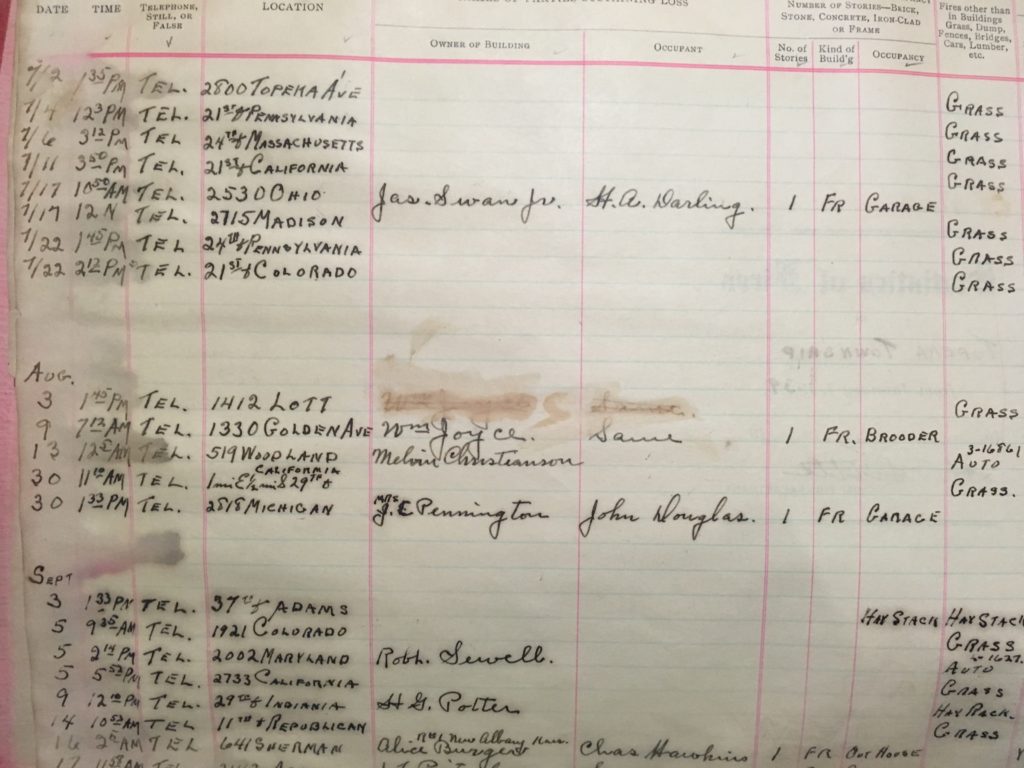 DATE TIME TELEPHONE, STILL, OR FALSE LOCATION SUSTAINING LOSS OWNER OF BUILDING OCCUPANT NUMBER OF STORIES—BRICK, STONE, CONCRETE, IRON-CLAD OR FRAME No. of Stories Kind of Build'g OCCUPANCY Fires other than in Buildings Grass, Dump, Fences, Bridges, Cars, Lumber, etc.
7/2 1 35 PM TEL. 2800 TOPEKA AVE GRASS
7/4 12 3 PM TEL. 21ST & PENNSYLVANIA GRASS
7/6 3 12 PM TEL. 24TH & MASSACHUSETTS GRASS
7/11 3 50 PM TEL. 21ST & CALIFORNIA GRASS
7/17 10 50 AM TEL. 2530 OHIO Jas. Swan Jr. H.A. Darling. 1 FR GARAGE
7/17 12 N TEL. 2715 MADISON GRASS
7/22 1 45 PM TEL 24TH & PENNSYLVANIA GRASS
7/22 2 12 PM TEL. 21ST & COLORADO GRASS
AUG.
3 1 45 PM TEL. 1412 LOTT GRASS
9 7 12 AM TEL. 1330 GOLDEN AVE Wm Joyce. Same 1 FR. BROODER
13 AM TEL. 519 WOODLAND Melvin Christianson 3-16861 AUTO
30 11 10 AM TEL. 1 mi E ½ mi S 29TH & CALIFORNIA GRASS.
30 1 33 PM TEL. 2818 MICHIGAN MRS. J.E Pennington John Douglas. 1 FR GARAGE
SEPT
3 1 33 PM TEL. 37TH & ADAMS HAY STACK HAY STACK
5 9 35 AM TEL. 1921 COLORADO GRASS
5 2 14 PM TEL. 2002 MARYLAND Robt. Sewell. AUTO
5 5 52 PM TEL. 2733 CALIFORNIA GRASS
9 12 10 PM TEL. 29TH & INDIANIA H G. Potter HAY RACK.
14 10 52 AM TEL 11TH & REPUBLICAN GRASS
16 AM TEL 641 SHERMAN Alice Burgess New Albany Kans. Chas Hawkins 1 FR OUT HOUSE
17 AM TEL